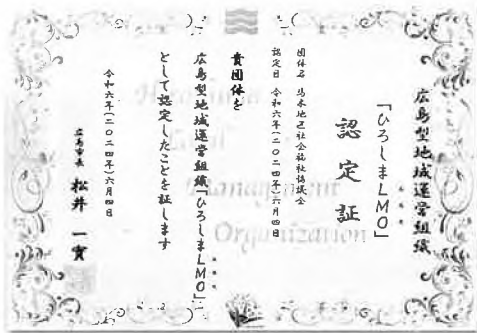 広島型地域運営組織
「ひろしまLMO」
認定証
団体名 馬木地区社会福祉協議会
認定日 令和六年(二〇二四年)六月四日
貴団体を
広島型地域運営組織「ひろしまLMO」
として認定したことを証します
令和六年(二〇二四年)六月四日
広島市長 松井 一實
Hiroshima
Local
Management
Organization